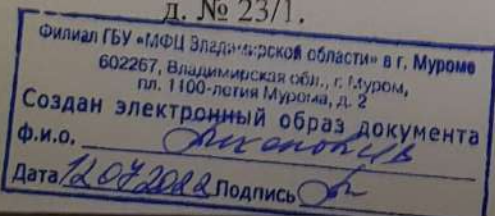 д. № 23/1.
Филиал ГБУ «МФЦ Владимирской области» в г. Муроме
602267, Владимирская обл., г. Муром,
пл. 1100-летия Мурома, д. 2
Создан электронный образ документа
ф.и.о.
Дата 12.07.2022 Подпись